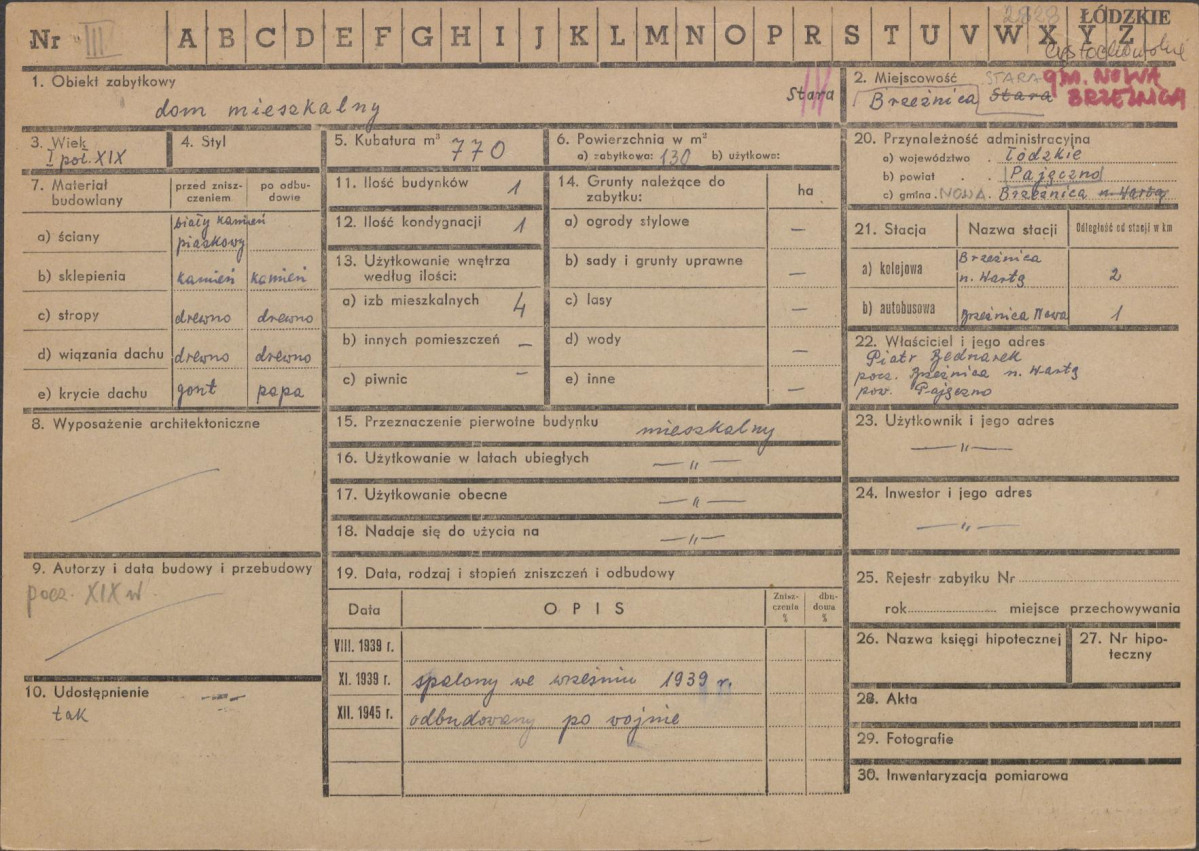 Nr III A B C D E F G H I J K L M N O P R S T U V W X Y Z
2828 ŁÓDZKIE
1. Obiekt zabytkowy
dom mieszkalny
Stara
2. Miejscowość STARA gm. NOWA
Brzeźnica Stara BRZEŹNICA
3. Wiek
I poł. XIX
4. Styl
5. Kubatura m³ 770
6. Powierzchnia w m²
a) zabytkowa: 130 b) użytkowa:
20. Przynależność administracyjna
a) województwo . Łódzkie
b) powiat . . Pajęczno
c) gmina . NOWA . Brzeźnica n. Wartą
7. Materiał budowlany
przed znisz-
czeniem
po odbu-
dowie
a) ściany
biały kamień
piaskowy
b) sklepienia kamień kamień
c) stropy drewno drewno
d) wiązania dachu drewno drewno
e) krycie dachu gont papa
11. Ilość budynków 1
12. Ilość kondygnacji 1
13. Użytkowanie wnętrza
według ilości:
a) izb mieszkalnych 4
b) innych pomieszczeń –
c) piwnic –
14. Grunty należące do
zabytku:
ha
a) ogrody stylowe –
b) sady i grunty uprawne –
c) lasy –
d) wody –
e) inne –
21. Stacja Nazwa stacji Odległość od stacji w km
a) kolejowa Brzeźnica
n. Wartą 2
b) autobusowa Brzeźnica Nowa 1
22. Właściciel i jego adres
Piotr Bednarek
pocz. Brzeźnica n. Wartą
pow. Pajęczno
8. Wyposażenie architektoniczne
15. Przeznaczenie pierwotne budynku mieszkalny
16. Użytkowanie w latach ubiegłych — " —
17. Użytkowanie obecne — " —
18. Nadaje się do użycia na — " —
23. Użytkownik i jego adres
— " —
24. Inwestor i jego adres
— " —
9. Autorzy i data budowy i przebudowy
pocz. XIX w.
10. Udostępnienie
tak
19. Data, rodzaj i stopień zniszczeń i odbudowy
Data OPIS Znisz-
czenia
%
dbu-
doma
%
VIII. 1939 r.
XI. 1939 r. spalony we wrześniu 1939 r.
XII. 1945 r. odbudowany po wojnie
25. Rejestr zabytku Nr
rok miejsce przechowywania
26. Nazwa księgi hipotecznej
27. Nr hipo-
teczny
28. Akta
29. Fotografie
30. Inwentaryzacja pomiarowa